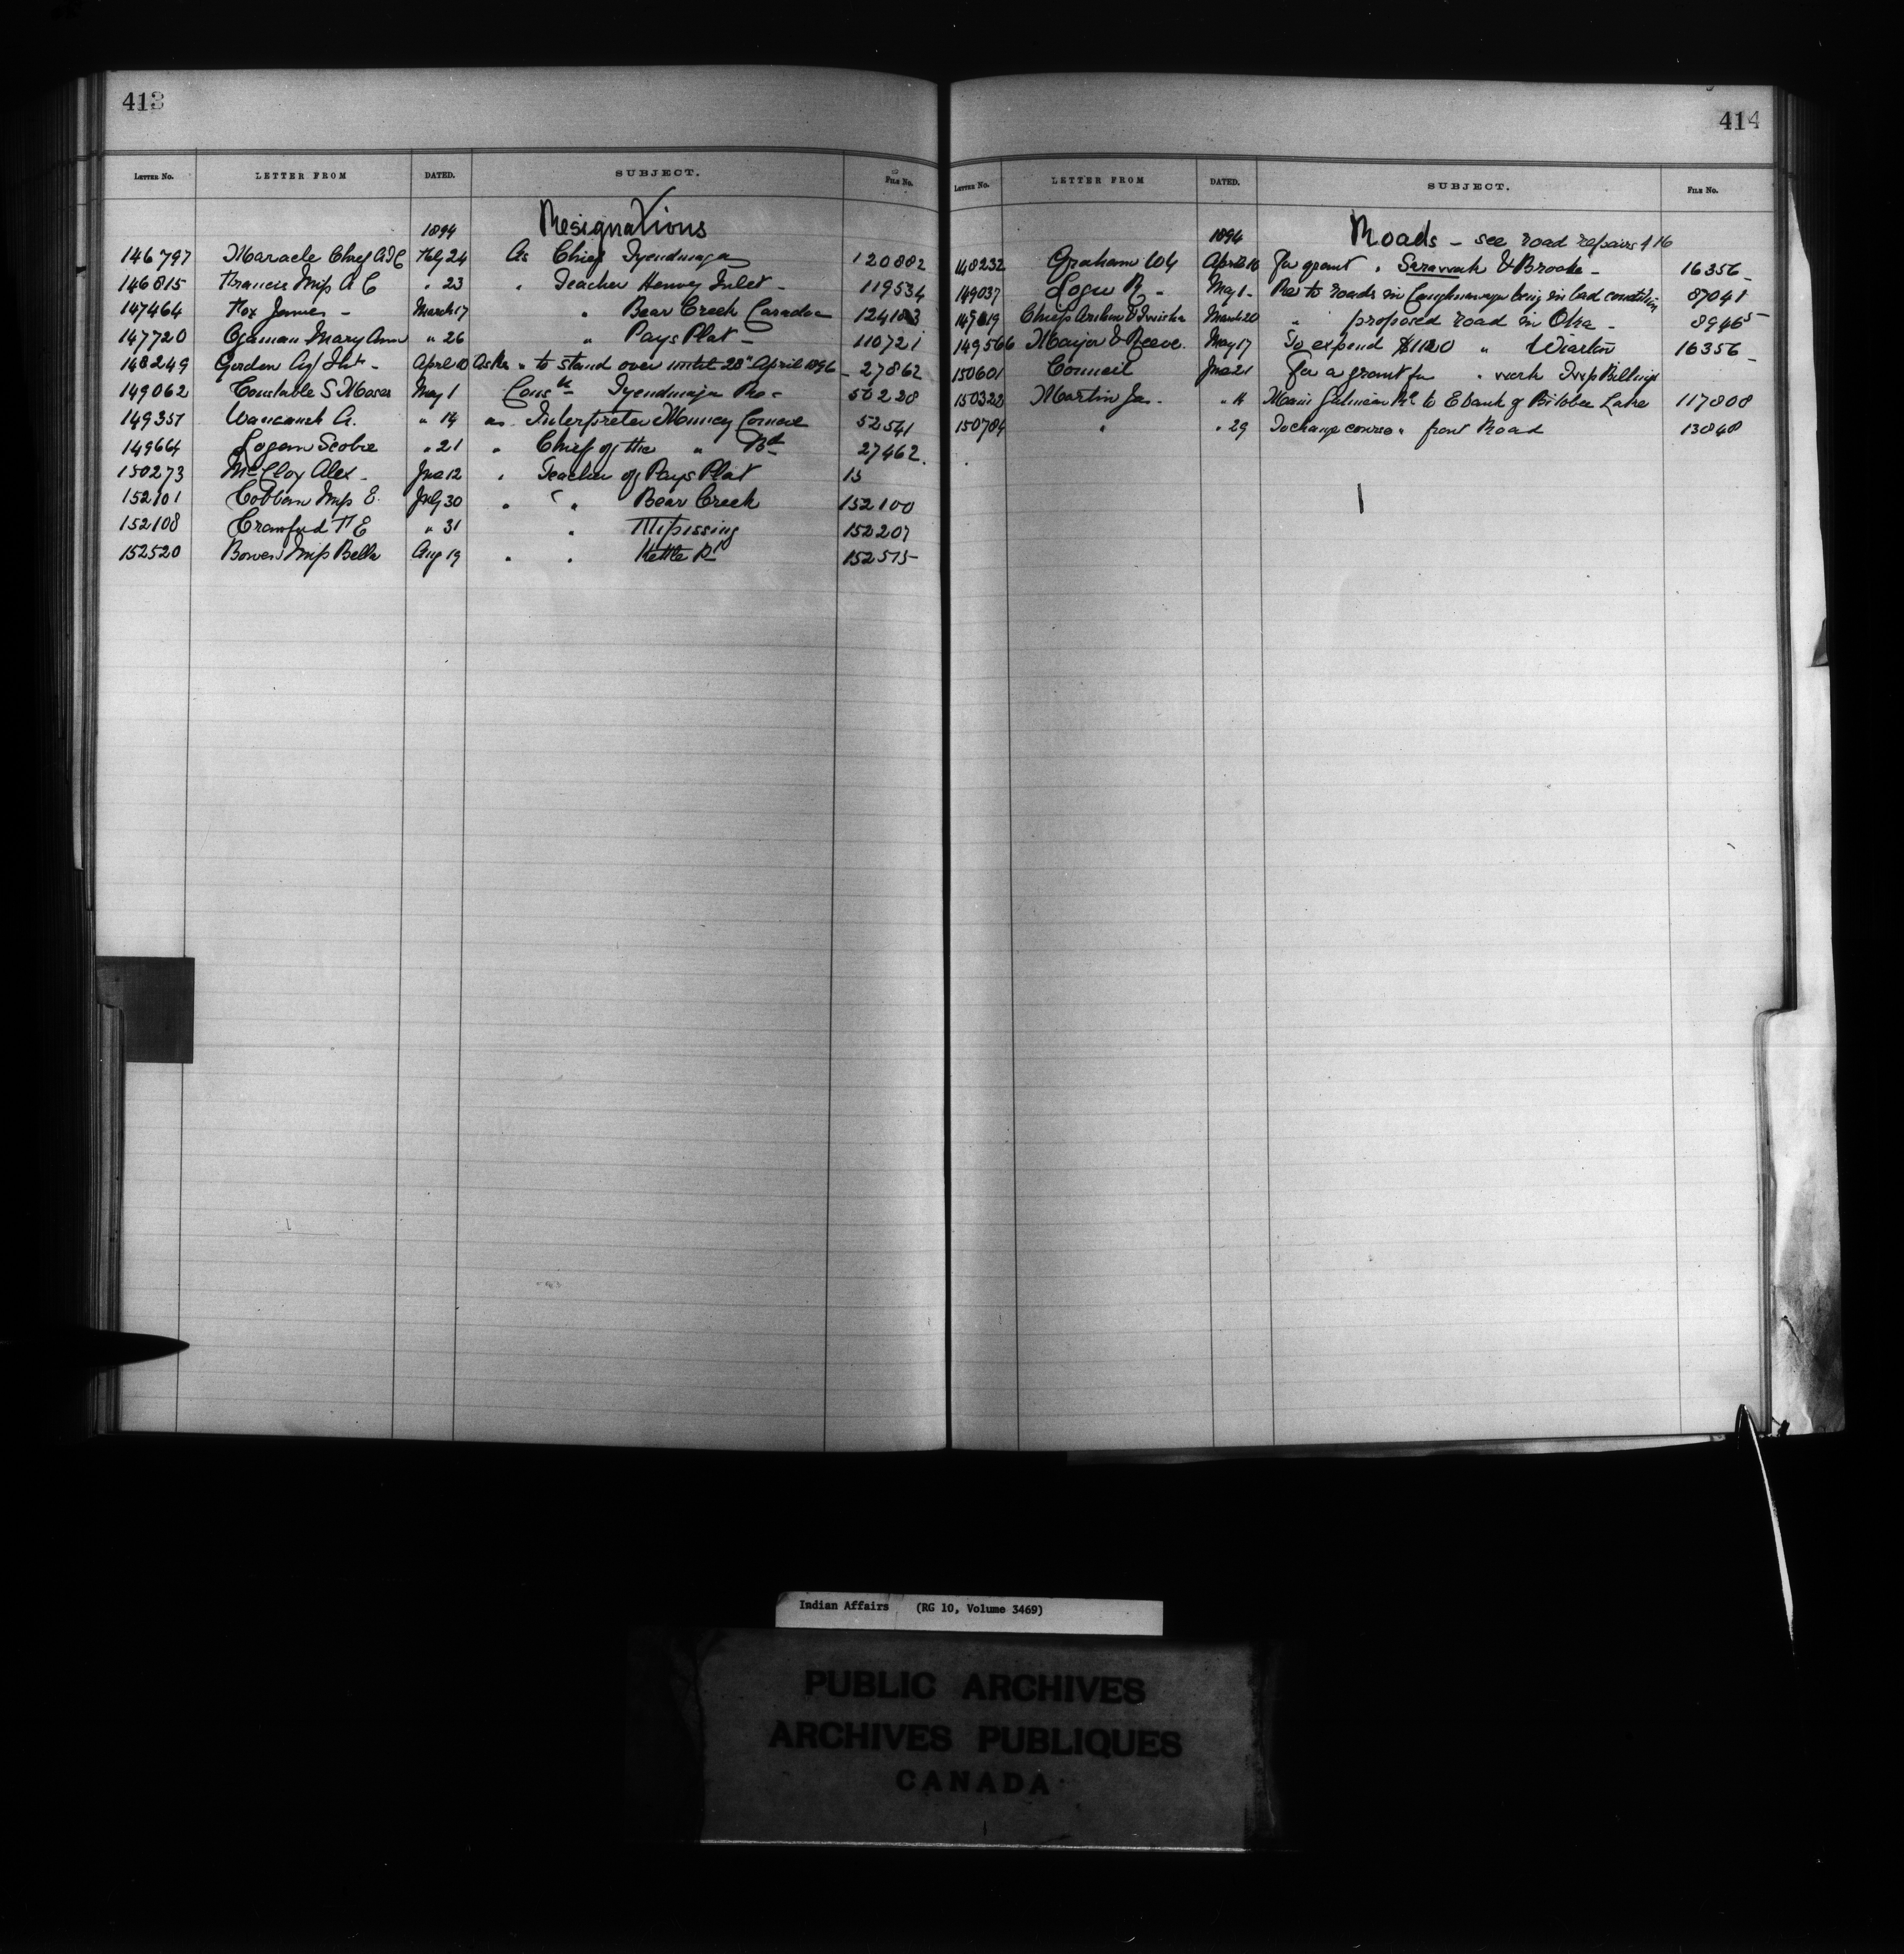 413
LETTER No. LETTER FROM DATED. SUBJECT. FILE No.
1894 Resignations
146797 Maracle Chief A.J.C Feby 24 As Chief Tyendinaga 120882
146815 Francis Miss A C " 23 " Teacher Henvey Inlet - 119534
147464 Fox James - March 17 " Bear Creek Caradoc 124183
147720 Ogaman Mary Ann " 26 " Pays Plat - 110721
148249 Gordon April 10 Asks " to stand over until 28" April 1896 - 27862
149062 Constable S Moses May 1 Const Tyendinaga Res - 50228
149357 Waucaush A. " 14 as Interpreter Muncey Council 52541
149664 Logan Scobie " 21 " Chief of the " Bd 27462.
150273 McCloy Alex - June 12 " Teacher of Pays Plat 15
152101 Cobban Miss E. July 30 " " " Bear Creek 152100
152108 Crawford F E " 31 " Nipissing 152207
152520 Bowers Miss Bella Aug 19 " " Kettle Pt 152515
414
LETTER No. LETTER FROM DATED. SUBJECT. FILE No.
1894 Roads - see road repairs 416
148232 Graham W April 10 for grant " Sarawak & Brooke - 16356 -
149037 Logie R - May 1 - Re to roads in Caughnawaga being in bad condition 87041
Chiefs March 20 " proposed road in Oka - 89465
149566 Mayor & Reeve. May 17 To expend $1120 " Wiarton 16356 -
150601 Council June 21 for a grant for " work Twp Billings
150322 Martin Ja. " 11 Main to E bank of Lake 117808
150784 " " 29 To change course " front Road 13848
Indian Affairs (RG 10, Volume 3469)
PUBLIC ARCHIVES
ARCHIVES PUBLIQUES
CANADA